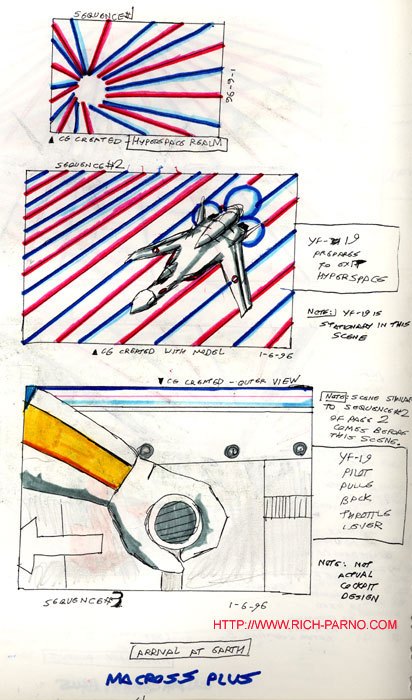 SEQUENCE#1
1-6-96
▲ CG CREATED - HYPERSPACE REALM
SEQUENCE#2
YF-19
PREPARES
TO EXIT
HYPERSPACE
NOTE: YF-19 IS
STATIONARY IN THIS
SCENE
▲ CG CREATED WITH MODEL
1-6-96
▼ CG CREATED - OUTER VIEW
NOTE: SCENE SIMILAR
TO SEQUENCE#2
OF PAGE 2
COMES BEFORE
THIS SCENE.
YF-19
PILOT
PULLS
BACK
THROTTLE
LEVER
NOTE: NOT
ACTUAL
COCKPIT
DESIGN
SEQUENCE#3
1-6-96
HTTP://WWW.RICH-PARNO.COM
ARRIVAL AT EARTH
MACROSS PLUS